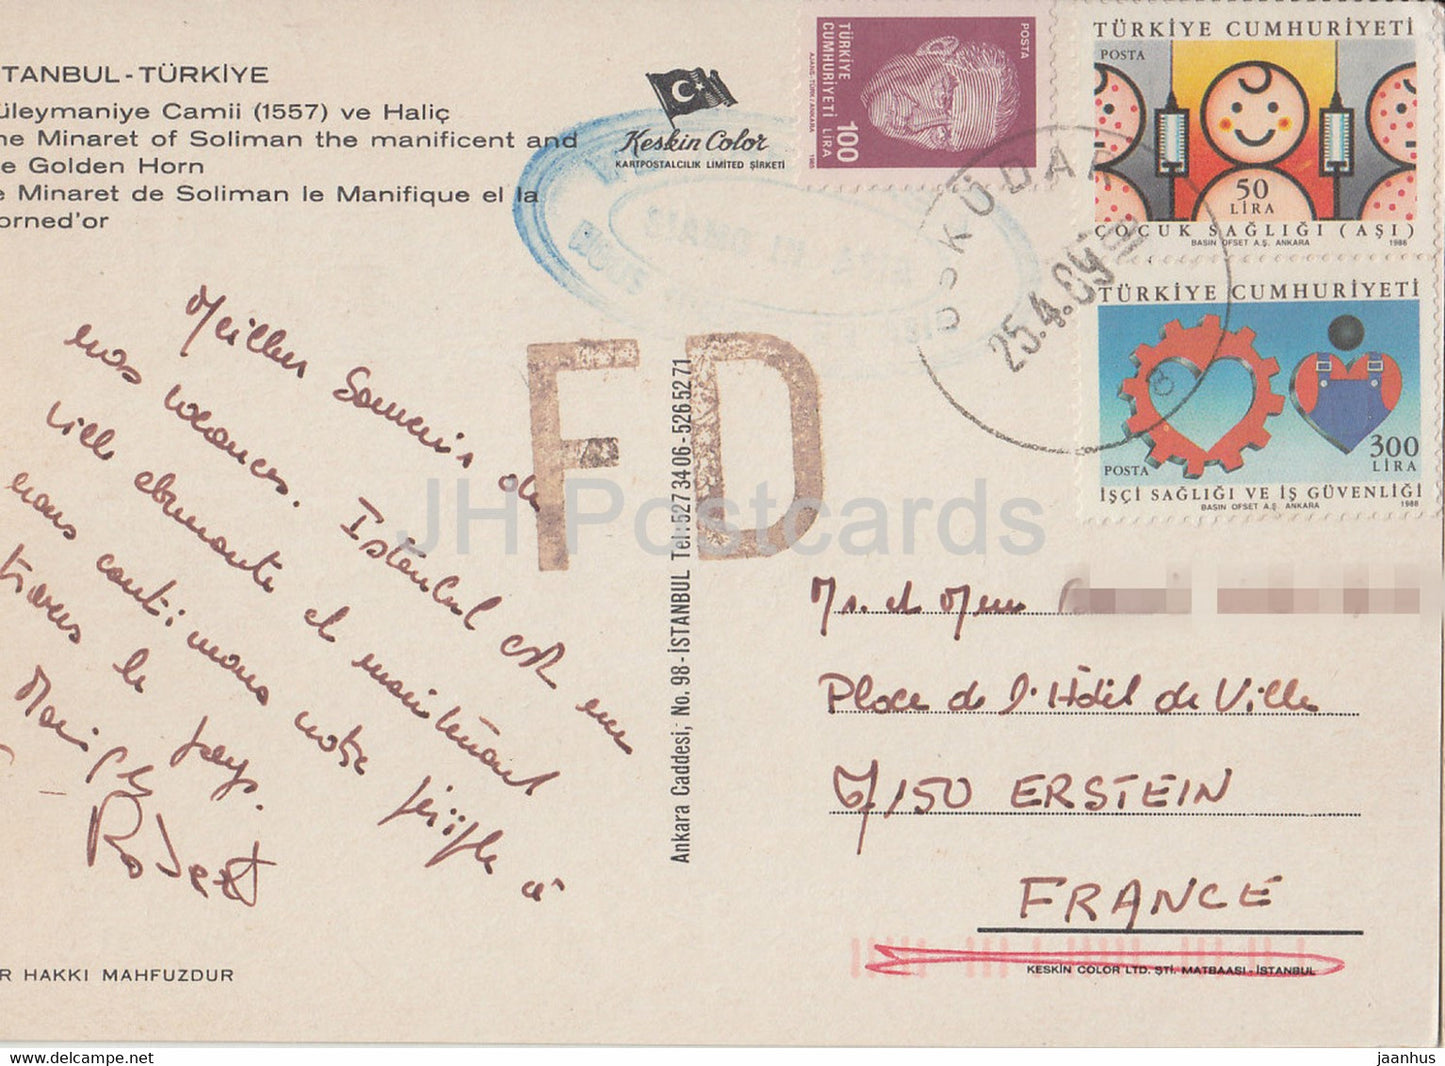 TANBUL-TÜRKİYE
üleymaniye Camii (1557) ve Haliç
ne Minaret of Soliman the manificent and
e Golden Horn
e Minaret de Soliman le Manifique el la
orned'or
Keskin Color
KARTPOSTALCILIK LIMITED ŞİRKETİ
POSTA
TÜRKİYE
CUMHURİYETİ
100
LİRA
AJANS-TÜRK/ANKARA
TÜRKİYE CUMHURİYETİ
POSTA
50
LİRA
ÇOCUK SAĞLIĞI (AŞI)
BASIN OFSET A.Ş. ANKARA 1988
TÜRKİYE CUMHURİYETİ
300
LİRA
POSTA
İŞÇİ SAĞLIĞI VE İŞ GÜVENLİĞİ
BASIN OFSET A.Ş. ANKARA 1988
ÜSKÜDAR
25.4.89
FD
Meilleur Souvenir de
nos vacances. Istanbul est une
ville étonnante et maintenant
nous continuons notre périple à
travers le pays.
Robert
Ankara Caddesi, No. 98-İSTANBUL Tel: 527 34 06-526 52 71
Mr. et Mme
Place de l'Hôtel de Ville
67150 ERSTEIN
FRANCE
R HAKKI MAHFUZDUR
KESKİN COLOR LTD. ŞTİ. MATBAASI - İSTANBUL
JH Postcards
www.delcampe.net
jaanhus